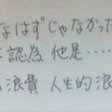 なはずじゃなかった
認為 他是……
浪費 人生的浪